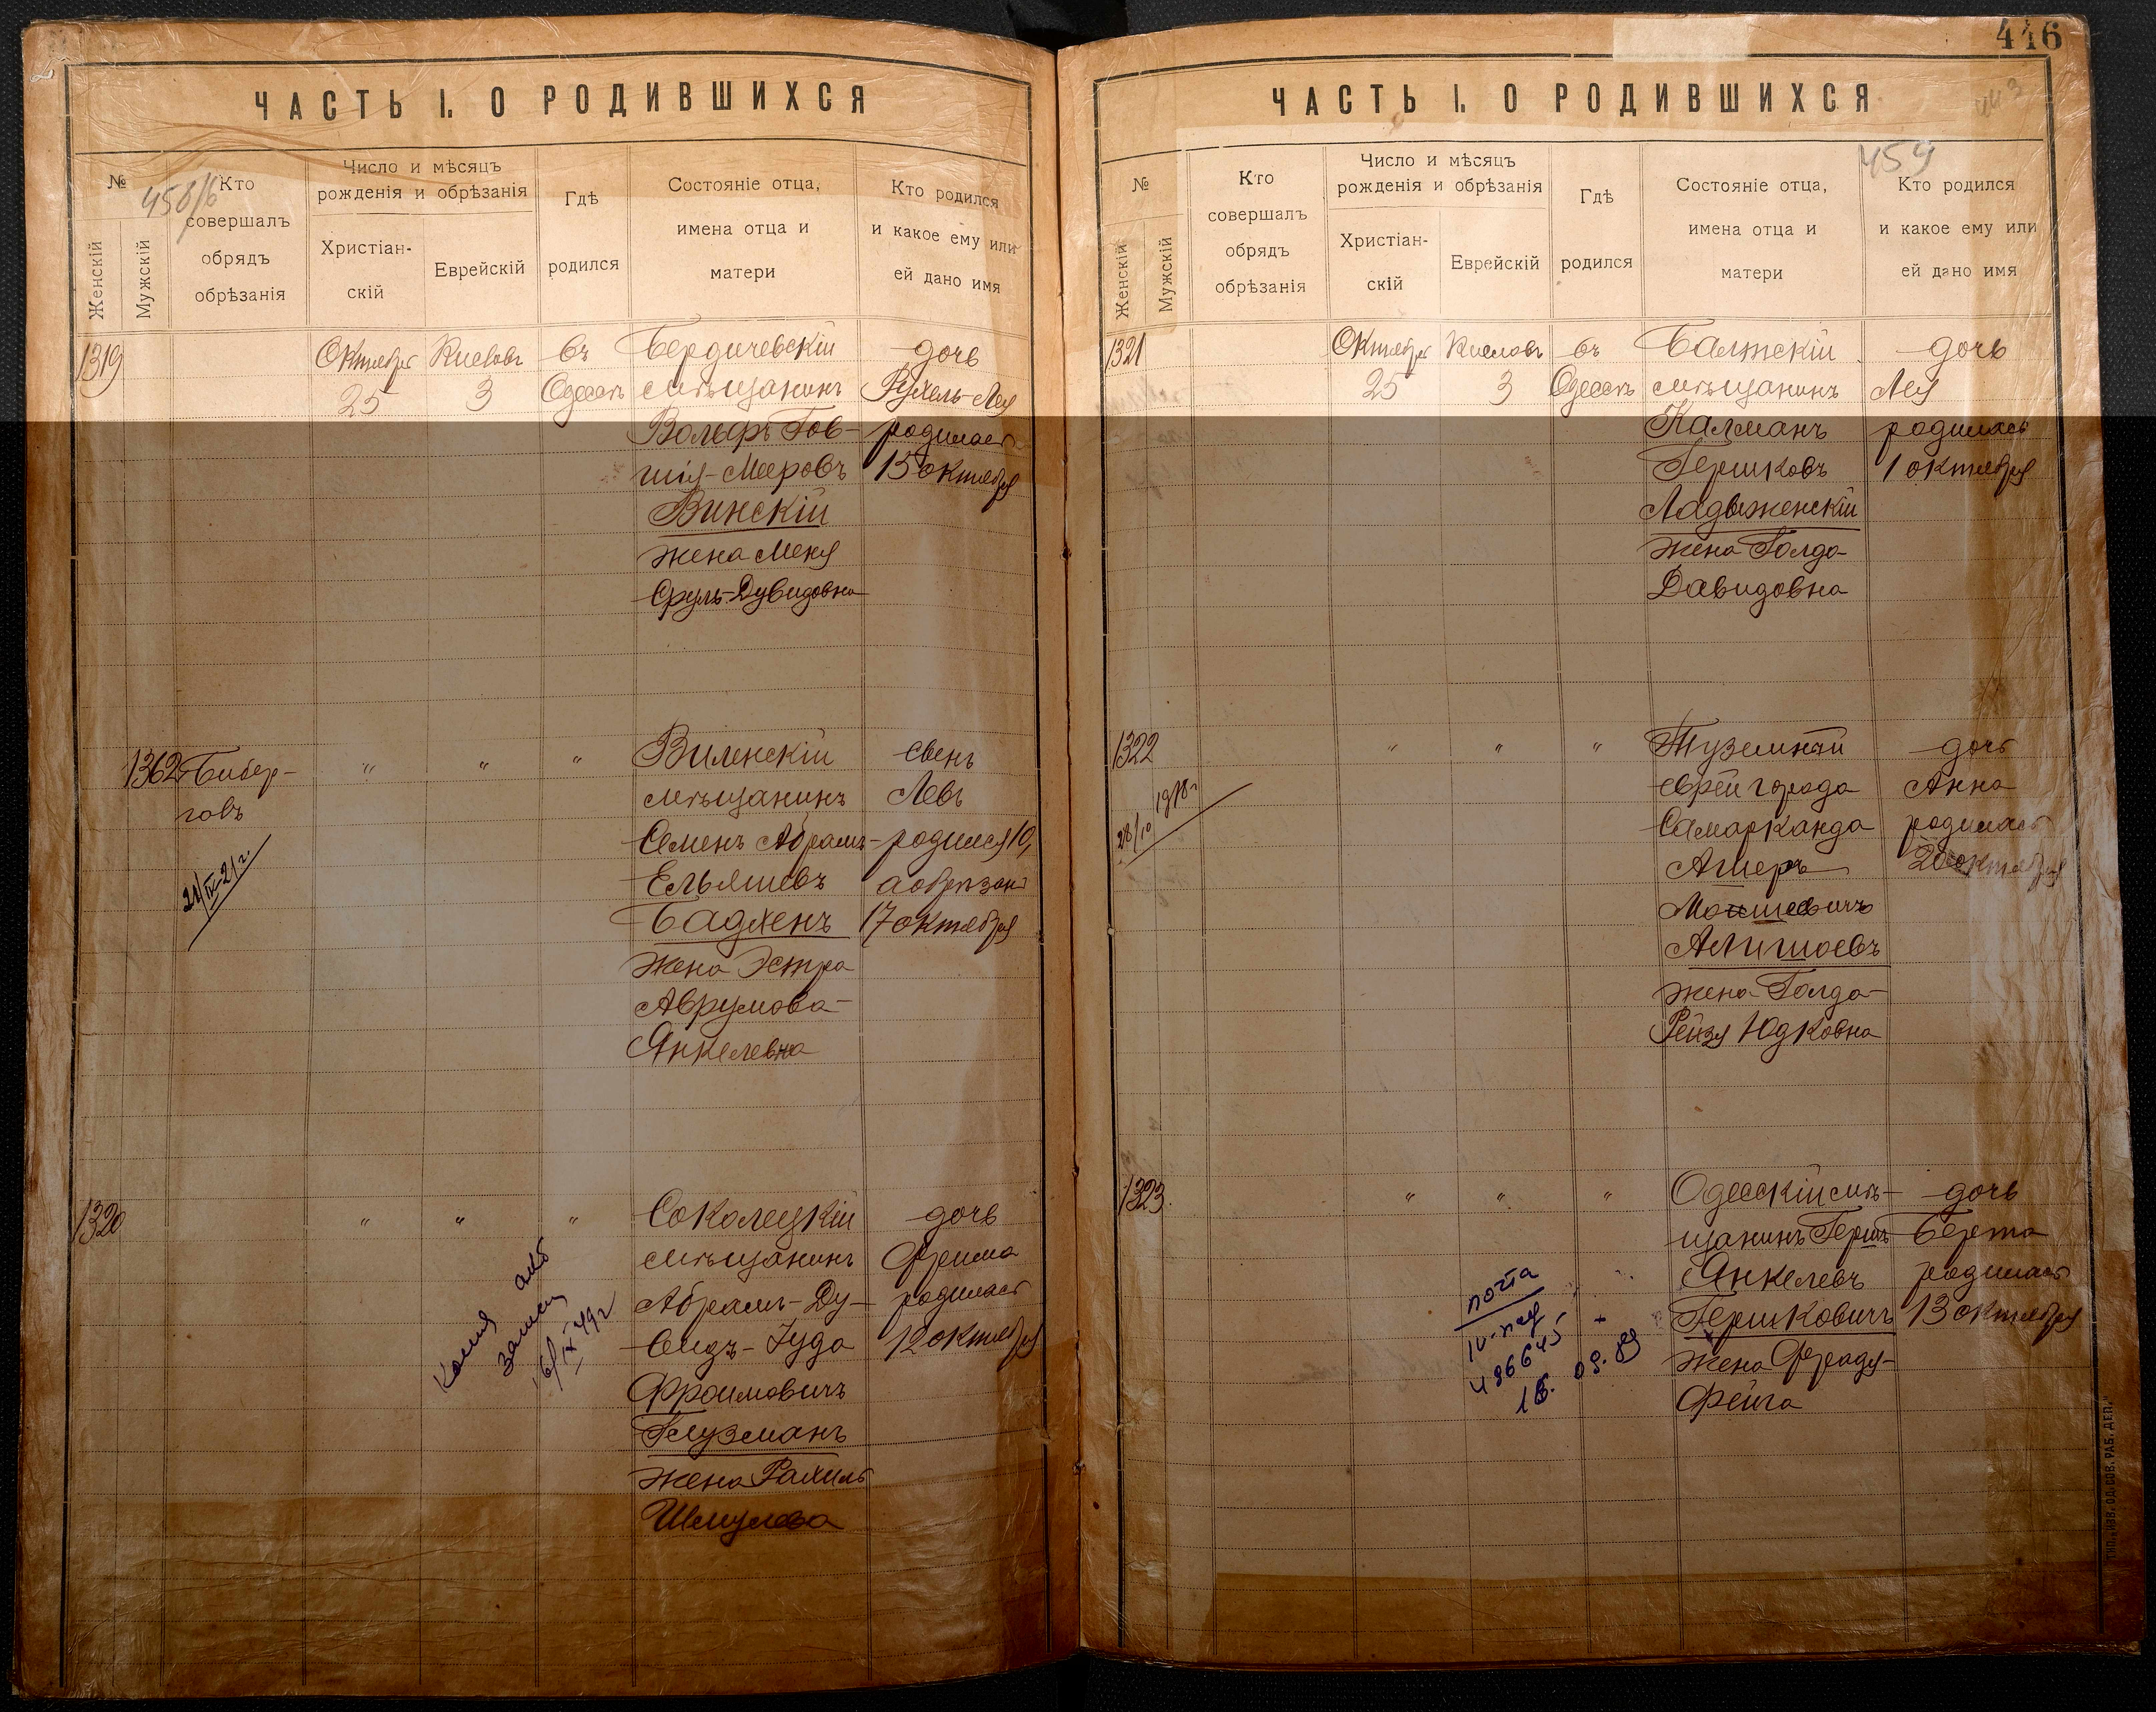 ЧАСТЬ I. О РОДИВШИХСЯ
№
Женскій
Мужскій
Кто
совершалъ
обрядъ
обрѣзанія
Число и мѣсяцъ
рожденія и обрѣзанія
Христіан-
скій
Еврейскій
Гдѣ
родился
Состояніе отца,
имена отца и
матери
Кто родился
и какое ему или
ей дано имя
1319
Октября
25
Кислевъ
3
въ
Одессѣ
Бердичевскій
мѣщанинъ
Вольфъ Гов-
шія-Мееровъ
Винскій
жена Меня
Сруль-Дувидовна
дочь
Рухель-Лея
родилась
15 октября
1362
Бибер-
говъ
21/IX-21г.
"
"
"
Виленскій
мѣщанинъ
Семенъ Абрамъ-
Ельяшевъ
Бадхенъ
жена Эстра
Аврумова-
Янкелевна
сынъ
Левъ
родился 10,
а обрѣзанъ
17 октября
1320
"
"
"
Соколецкій
мѣщанинъ
Абрамъ-Ду-
видъ-Іуда
Фроимовичъ
Глузманъ
жена Рахиль
Шмулева
дочь
Фрима
родилась
12 октября
Копия
запись
16/IX 49г
446
ЧАСТЬ I. О РОДИВШИХСЯ
459
№
Женскій
Мужскій
Кто
совершалъ
обрядъ
обрѣзанія
Число и мѣсяцъ
рожденія и обрѣзанія
Христіан-
скій
Еврейскій
Гдѣ
родился
Состояніе отца,
имена отца и
матери
Кто родился
и какое ему или
ей дано имя
1321
Октября
25
Кислевъ
3
въ
Одессѣ
Балтскій
мѣщанинъ
Калманъ
Гершковъ
Ладыженскій
жена Голда-
Давидовна
дочь
Лея
родилась
1 октября
1322
28/10 1918г
"
"
"
Туземный
еврей города
Самарканда
Ашеръ
Мошиевичъ
Алишоевъ
жена Голда-
Рейзя Юдковна
дочь
Анна
родилась
20 октября
1323.
"
"
"
Одесскій мѣ-
щанинъ Гершъ
Янкелевъ
Гершковичъ
жена Фраду-
Фейга
дочь
Берта
родилась
13 октября
почта
486645
18. 09. 89
ТИП. „ИЗВ. ОД. СОВ. РАБ. ДЕП."